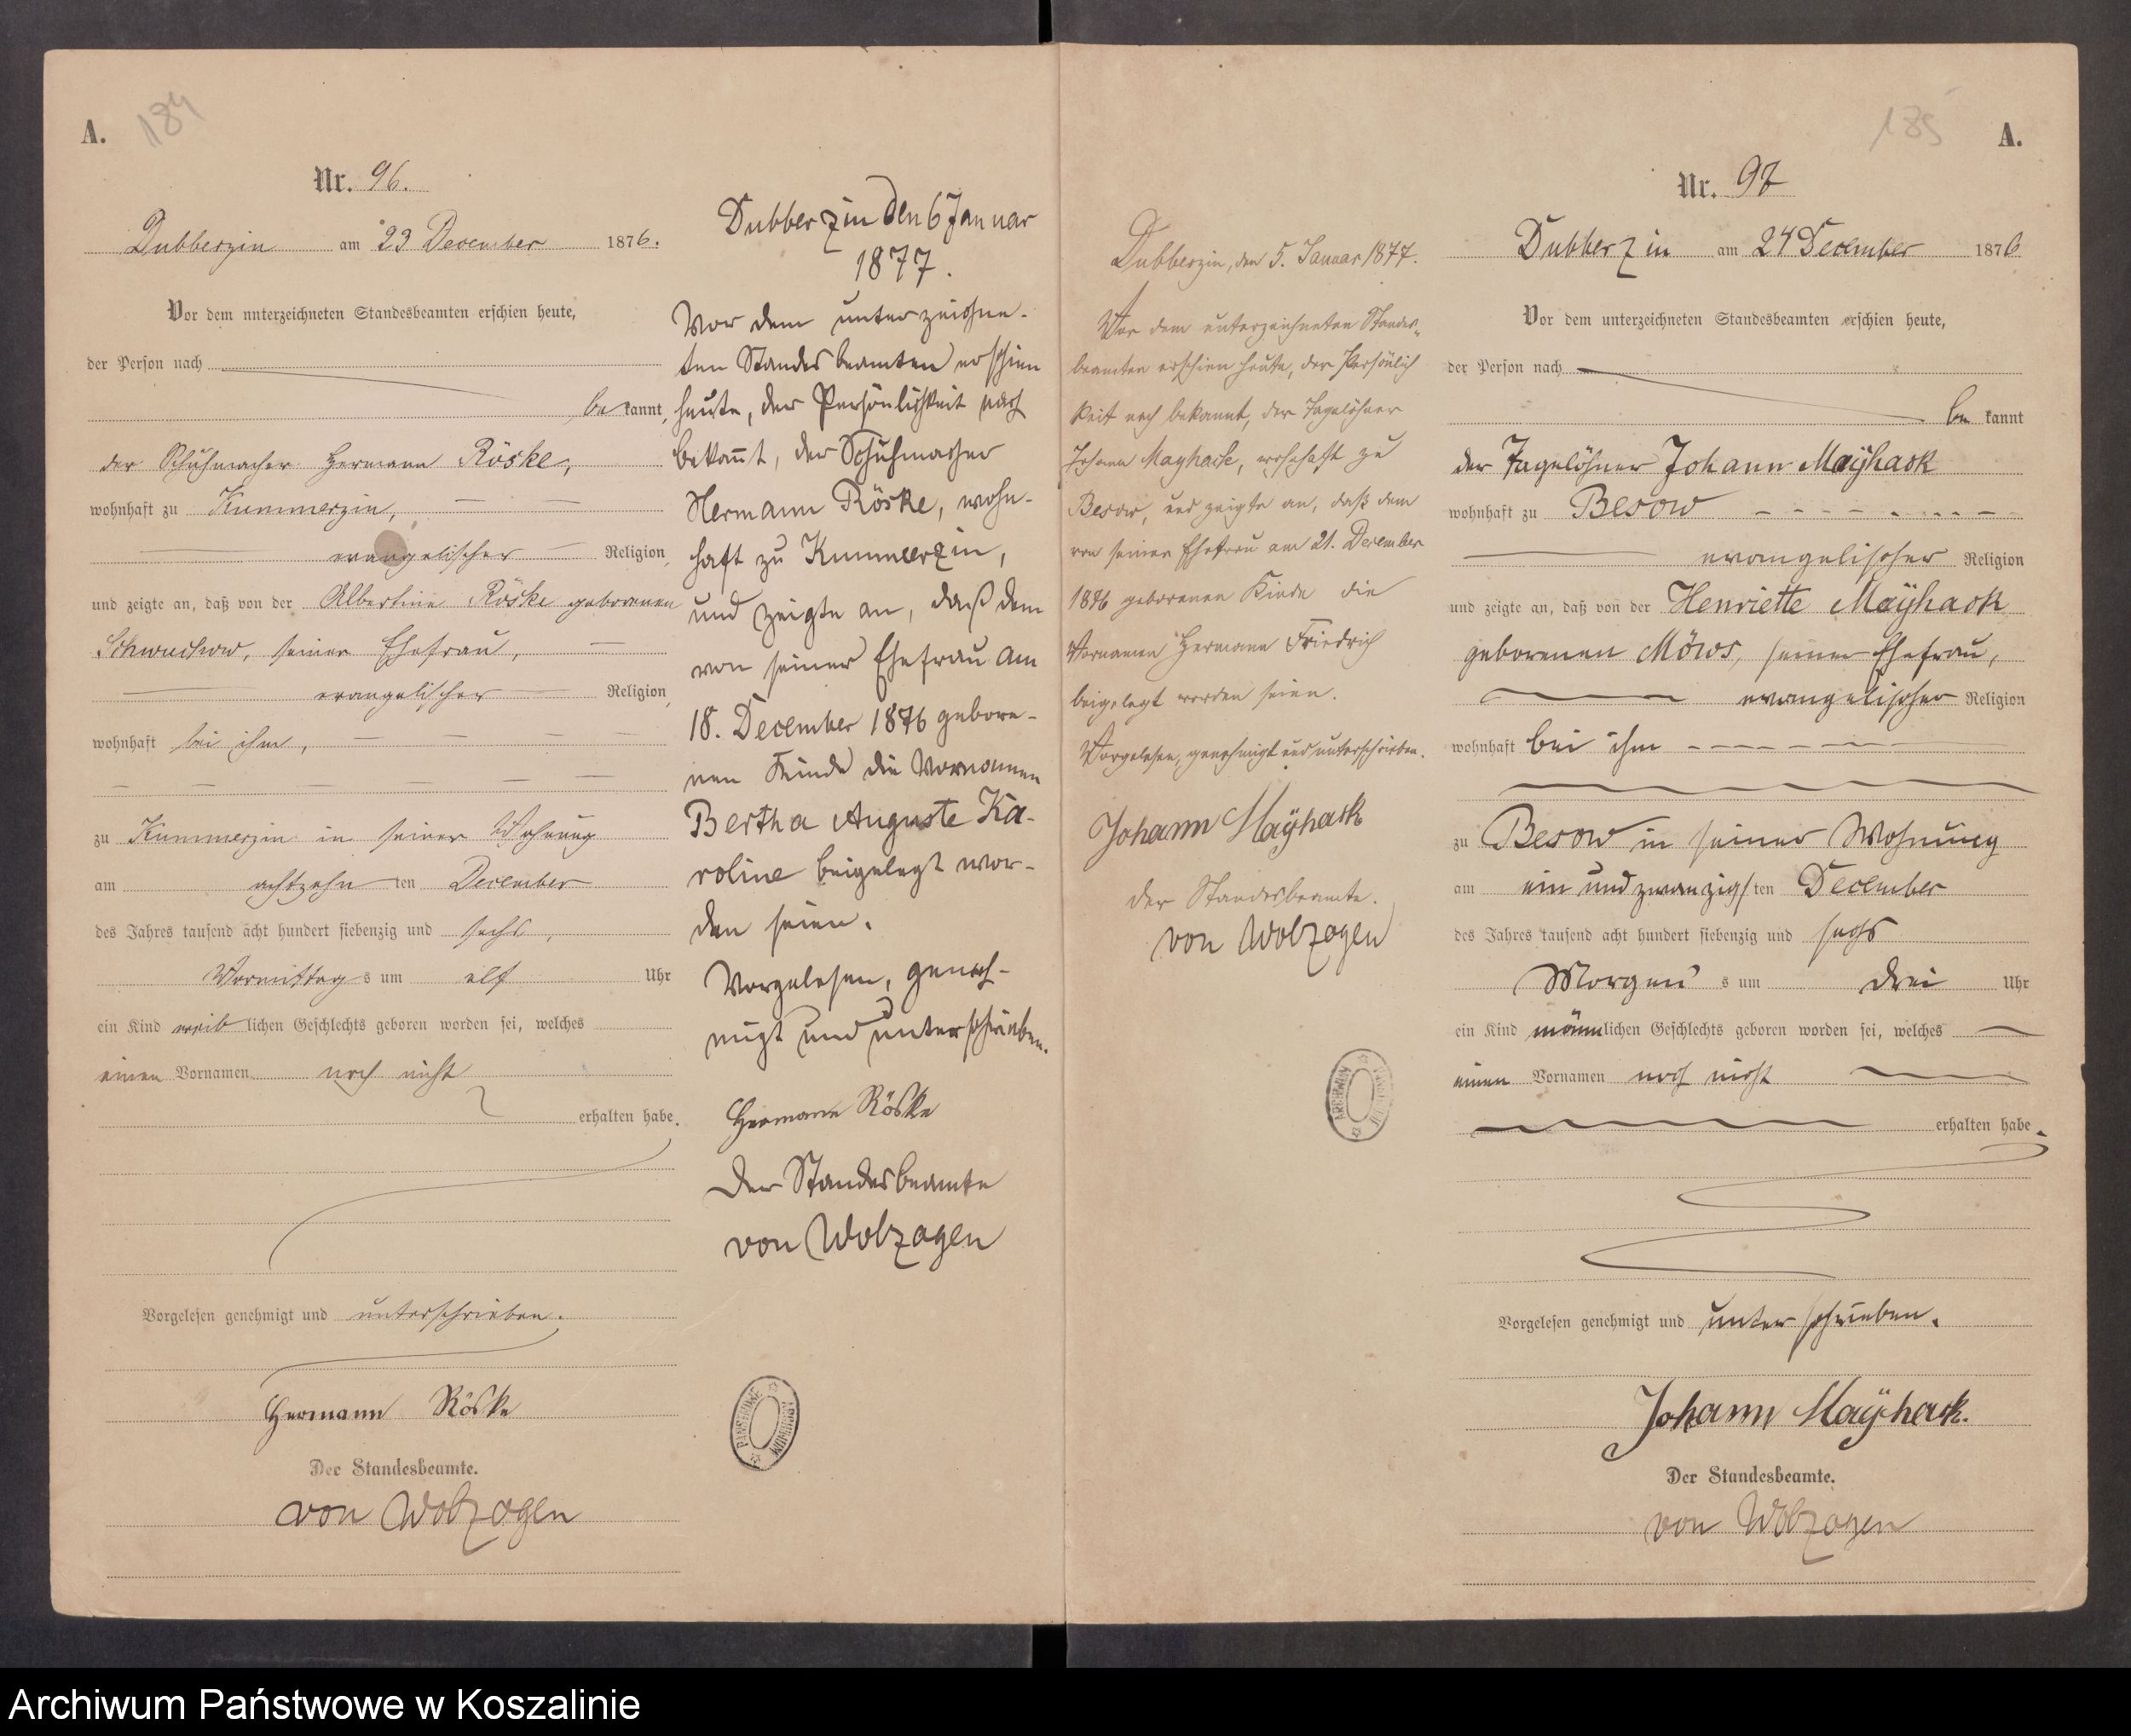 A.
184
Nr. 96.
Dubberzin am 23 December 1876.
Vor dem unterzeichneten Standesbeamten erschien heute,
der Person nach
bekannt,
der Schuhmacher Hermann Röske,
wohnhaft zu Kummerzin,
evangelischer Religion,
und zeigte an, daß von der Albertine Röske geborenen
Schwuchow, seiner Ehefrau,
evangelischer Religion,
wohnhaft bei ihm,
zu Kummerzin in seiner Wohnung
am achtzehn ten December
des Jahres tausend acht hundert siebenzig und sechs,
Vormittag s um elf Uhr
ein Kind weib lichen Geschlechts geboren worden sei, welches
einen Vornamen noch nicht
erhalten habe.
Vorgelesen genehmigt und unterschrieben.
Hermann Röske
Der Standesbeamte.
von Wolzogen
Dubberzin den 6 Januar
1877.
Vor dem unterzeichne-
ten Standesbeamten erschien
heute, der Persönlichkeit nach
bekannt, der Schuhmacher
Hermann Röske, wohn-
haft zu Kummerzin,
und zeigte an, daß dem
von seiner Ehefrau am
18. December 1876 gebore-
nen Kinde die Vornamen
Bertha Auguste Ka-
roline beigelegt wor-
den seien.
Vorgelesen, geneh-
migt und unterschrieben.
Hermann Röske
Der Standesbeamte
von Wolzogen
PAŃSTWOWE
ARCHIWUM
Dubberzin, den 5. Januar 1877.
Vor dem unterzeichneten Standes-
beamten erschien heute, der Persönlich
keit nach bekannt, der Tagelöhner
Johann Mayhack, wohnhaft zu
Besow, und zeigte an, daß dem
von seiner Ehefrau am 21. December
1876 geborenen Kinde die
Vornamen Hermann Friedrich
beigelegt worden seien.
Vorgelesen, genehmigt und unterschrieben.
Johann Maÿhack
Der Standesbeamte.
von Wolzogen
ARCHIWUM
A.
185
Nr. 97
Dubberzin am 24 December 1876
Vor dem unterzeichneten Standesbeamten erschien heute,
der Person nach
be kannt
der Tagelöhner Johann Maÿhack
wohnhaft zu Besow
evangelischer Religion
und zeigte an, daß von der Henriette Maÿhack
geborenen Möws, seiner Ehefrau,
evangelischer Religion
wohnhaft bei ihm
zu Besow in seiner Wohnung
am ein und zwanzigs ten December
des Jahres tausend acht hundert siebenzig und sechs
Morgen s um drei Uhr
ein Kind männlichen Geschlechts geboren worden sei, welches
einen Vornamen noch nicht
erhalten habe.
Vorgelesen genehmigt und unterschrieben.
Johann Maÿhack.
Der Standesbeamte.
von Wolzogen
Archiwum Państwowe w Koszalinie